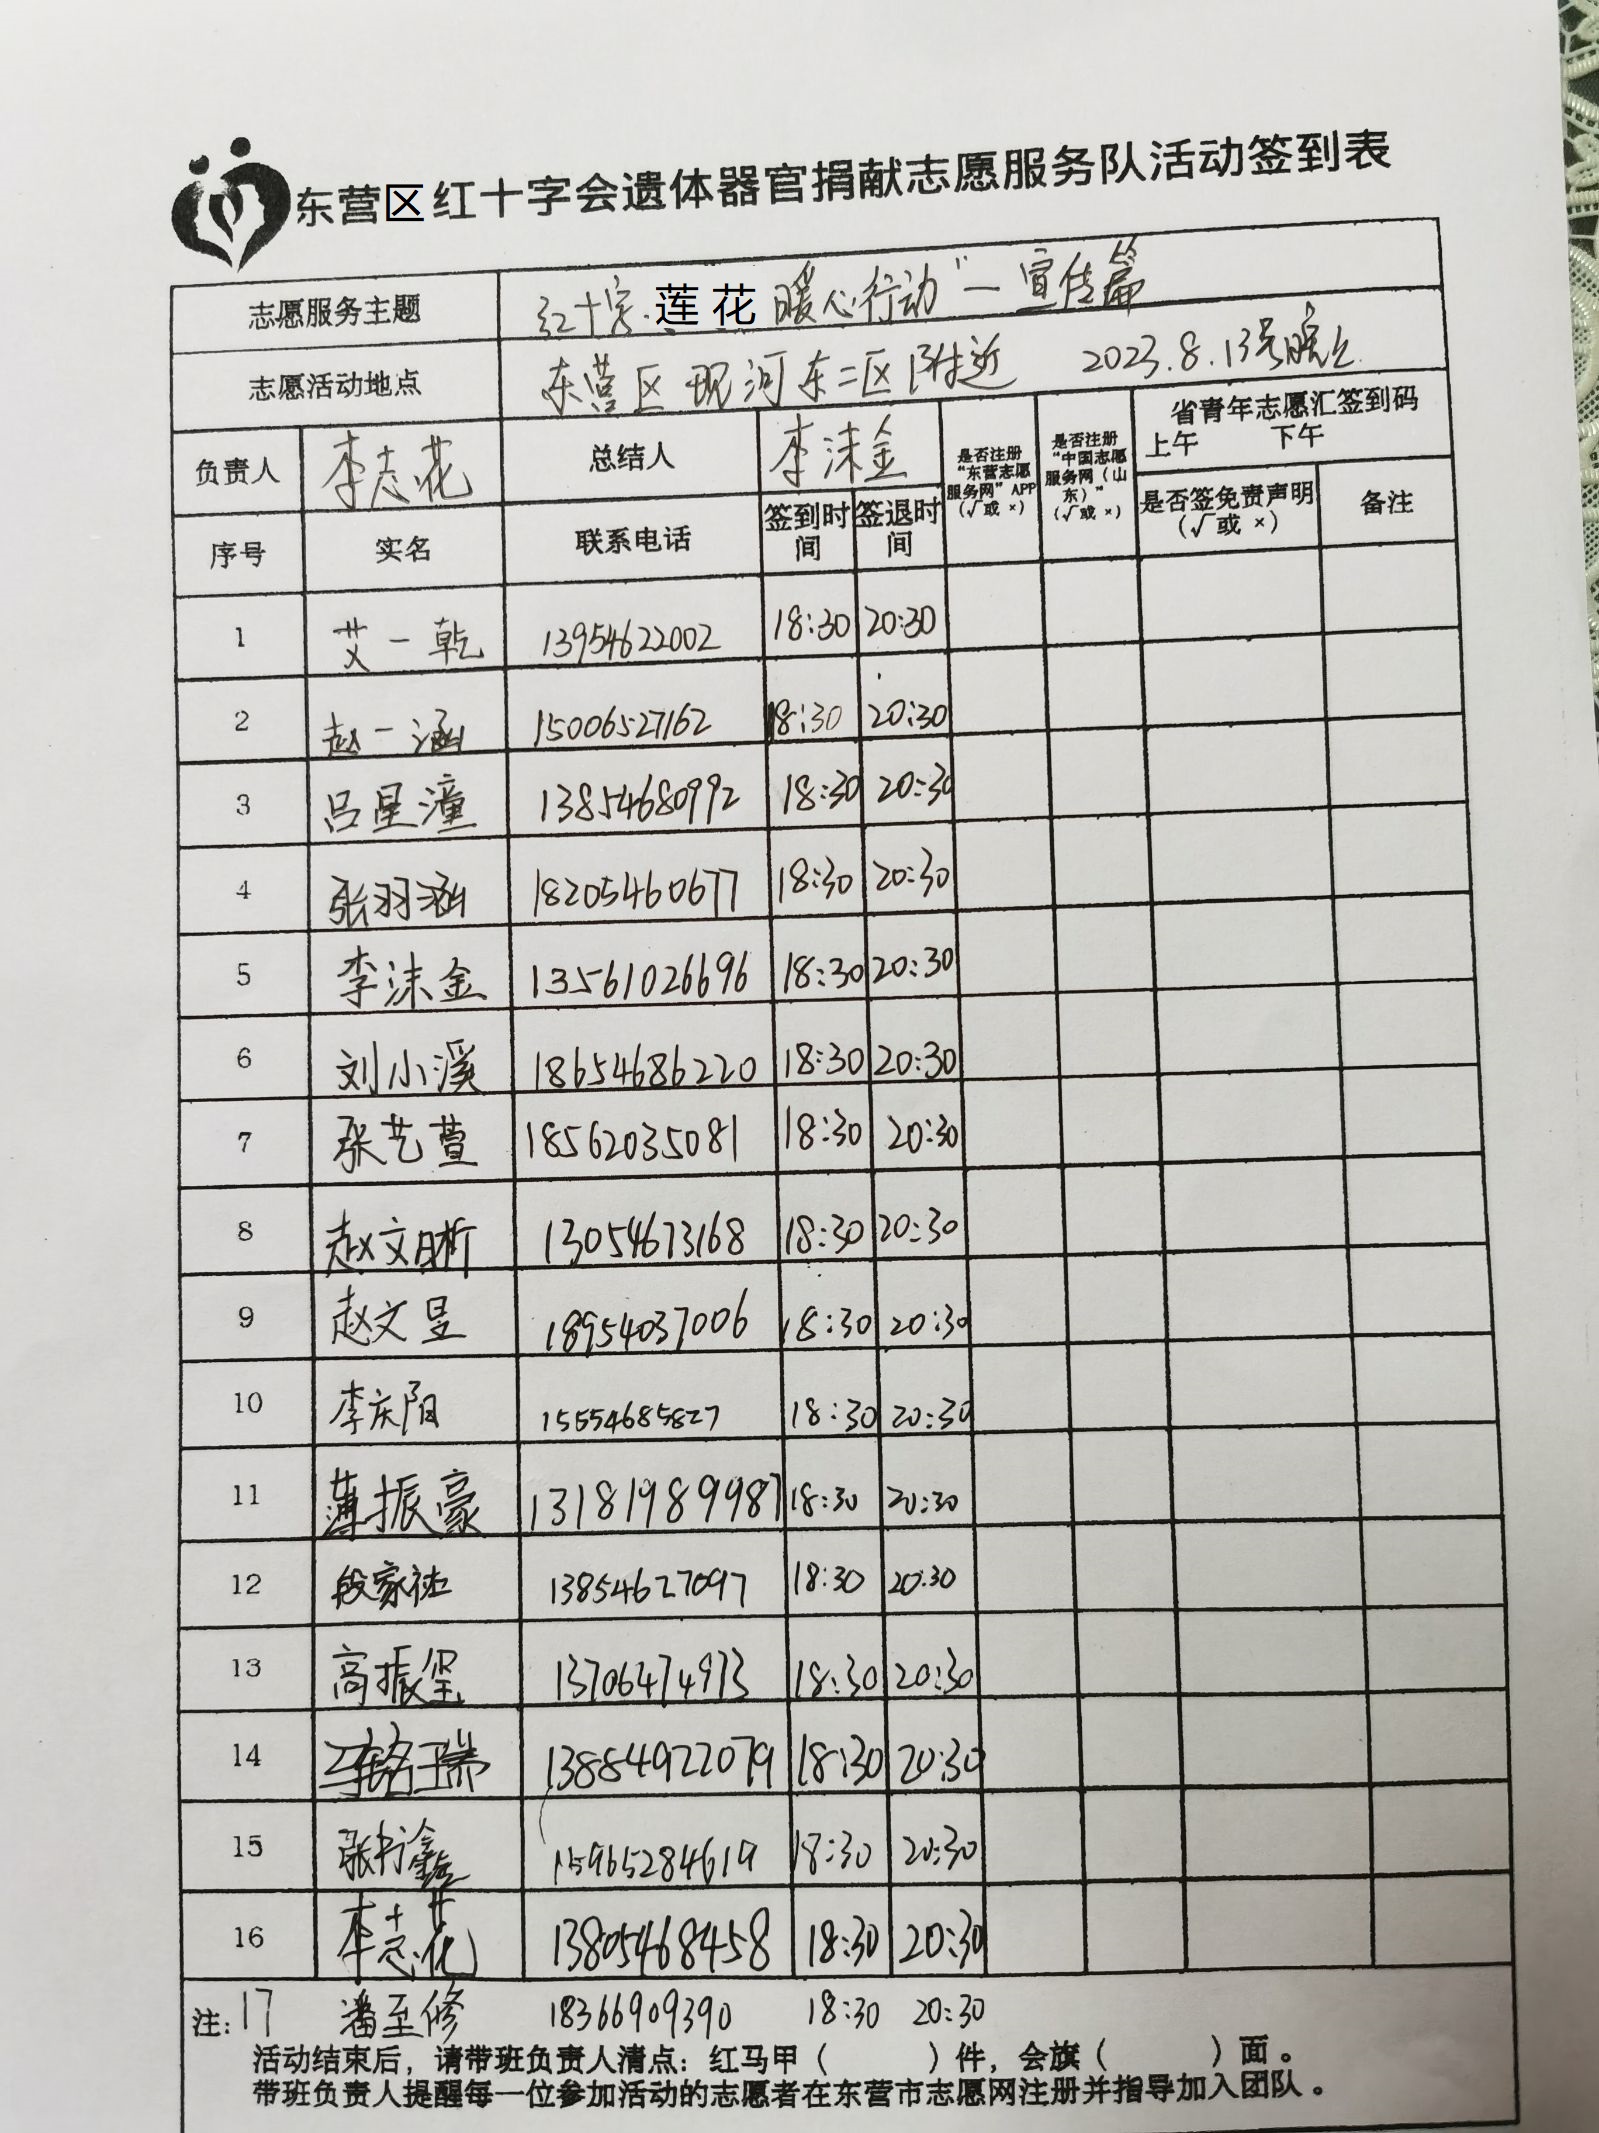 东营区红十字会遗体器官捐献志愿服务队活动签到表
志愿服务主题 红十字·莲花暖心行动"一宣传篇
志愿活动地点 东营区现河东二区附近 2023.8.13号晚上
负责人 李志花 总结人 李沫金 是否注册"东营志愿服务网"APP(√或×) 是否注册"中国志愿服务网(山东)"(√或×) 省青年志愿汇签到码 上午 下午
序号 实名 联系电话 签到时间 签退时间 是否签免责声明(√或×) 备注
1 艾一乾 13954622002 18:30 20:30
2 赵一涵 15006527162 18:30 20:30
3 吕星潼 13854680992 18:30 20:30
4 张羽涵 18205460677 18:30 20:30
5 李沫金 13561026696 18:30 20:30
6 刘小溪 18654686220 18:30 20:30
7 张艺萱 18562035081 18:30 20:30
8 赵文晰 13054673168 18:30 20:30
9 赵文昱 18954037006 18:30 20:30
10 李庆阳 15554685827 18:30 20:30
11 薄振豪 13181989987 18:30 20:30
12 段家祉 13854627097 18:30 20:30
13 高振玺 13706474973 18:30 20:30
14 铭瑞 13884922079 18:30 20:30
15 张书鑫 15965284619 18:30 20:30
16 李志花 13805468458 18:30 20:30
注: 17 潘至修 18366909390 18:30 20:30
活动结束后，请带班负责人清点：红马甲（ ）件，会旗（ ）面。
带班负责人提醒每一位参加活动的志愿者在东营市志愿网注册并指导加入团队。